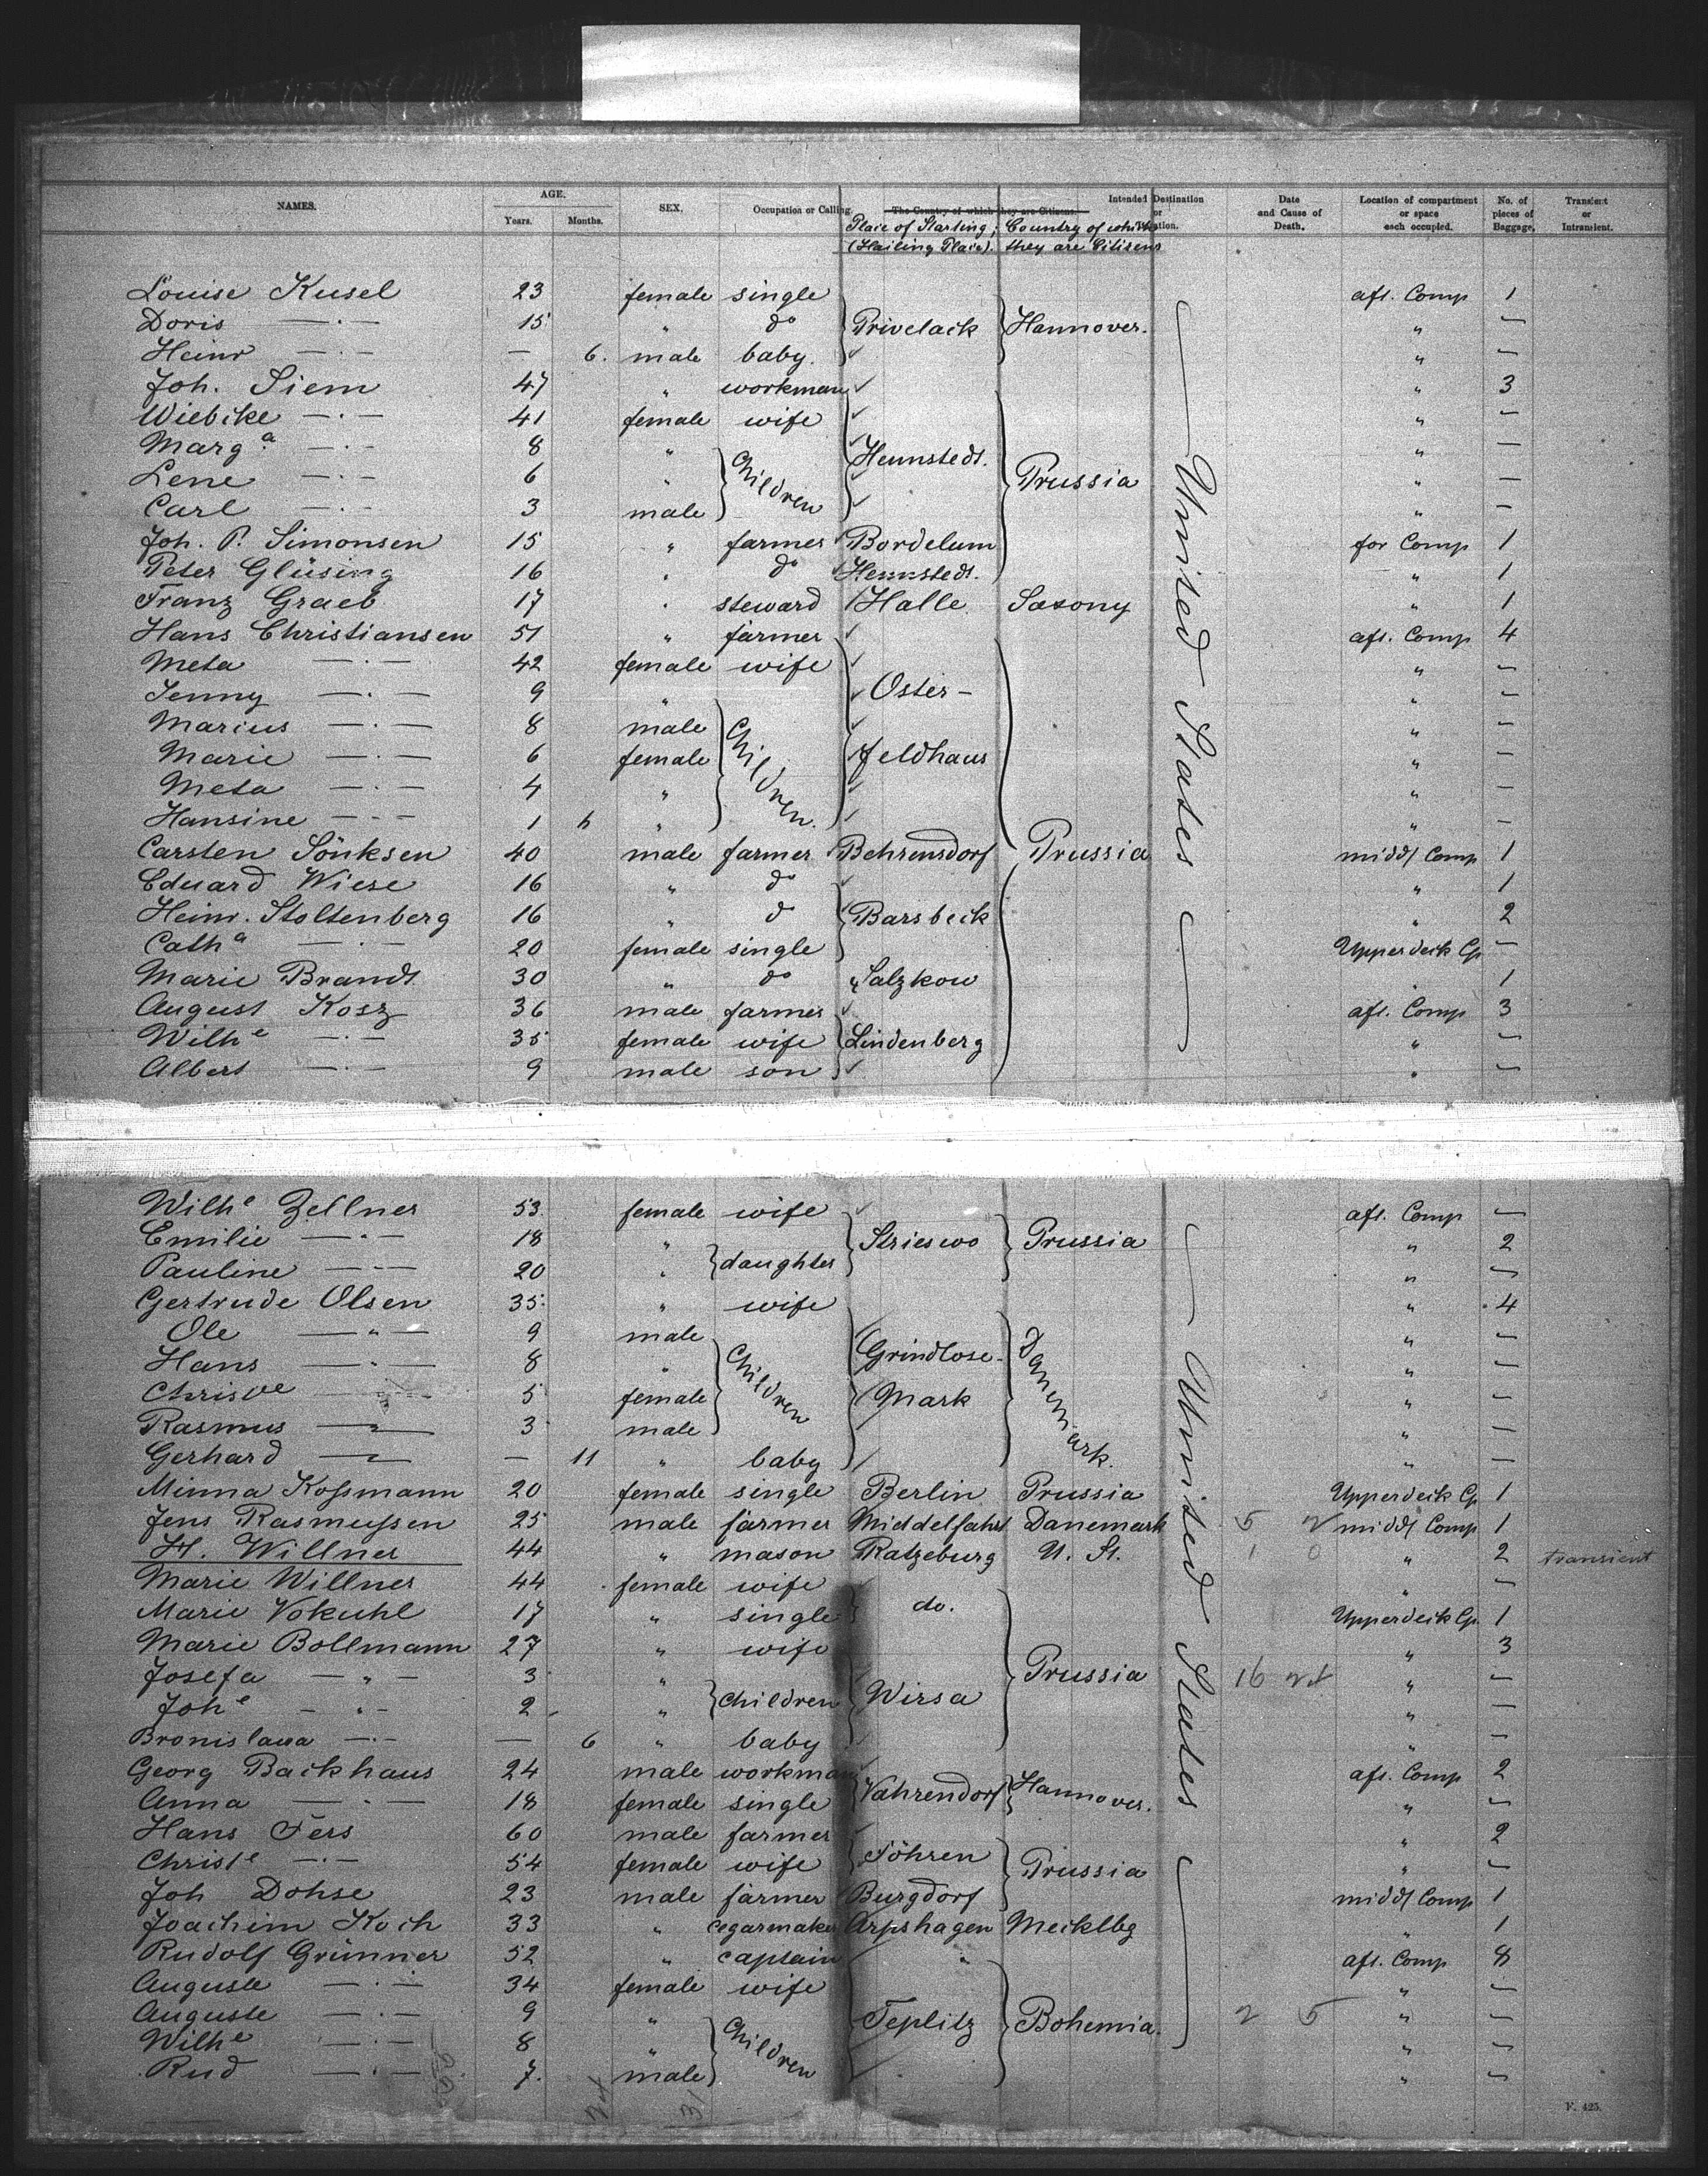 NAMES. AGE. SEX. Occupation or Calling. The Country of which they are Citizens. Intended Destination or Date and Cause of Death. Location of compartment or space each occupied. No. of pieces of Baggage. Transient or Intransient.
Years. Months. Place of Starting; (Hailing Place). Country of which they are Citizens
Louise Kusel 23 female single aft. Comp 1
Doris — · — 15 " do Privelack Hannover. " —
Heinr — · — — 6. male baby. " —
Joh. Siem 47 " workman " 3
Wiebcke — · — 41 female wife " —
Marg a — · — 8 " Hennstedt. " —
Lene — · — 6 " Children Prussia " —
Carl — · — 3 male " —
Joh. P. Simonsen 15 " farmer Bordelum for Comp 1
Peter Glüsing 16 " do Hennstedt. " 1
Franz Graeb 17 " steward Halle Saxony " 1
Hans Christiansen 51 " farmer aft. Comp 4
Meta — · — 42 female wife " —
Jenny — · — 9 " Oster- " —
Marius — · — 8 male " —
Marie — · — 6 female Children. feldhaus " —
Meta — · — 4 " " —
Hansine — · — 1 " " —
Carsten Sönksen 40 male farmer Behrensdorf Prussia middl Comp 1
Eduard Wiese 16 " do " 1
Heinr. Stoltenberg 16 " d Barsbeck " 2
Cath a — · — 20 female single Upperdeck Cp —
Marie Brandt 30 " do Salzkow " 1
August Kosz 36 male farmer aft. Comp 3
Wilh e — · — 35 female wife Lindenberg " —
Albert — · — 9 male son " —
United States
Wilh e Zellner 53. female wife aft. Comp —
Emilie — · — 18 " Strieswo Prussia " 2
Pauline — · — 20 " daughter " —
Gertrude Olsen 35. " wife " 4
Ole — " — 9 male " —
Hans — " — 8 " Children Grindlose- Danemark. " —
Christ e 5 female Mark " —
Rasmus — " — 3 male " —
Gerhard — " — — 11 " baby " —
Minna Koßmann 20 female single Berlin Prussia Upperdeck Cp 1
Jens Rasmußen 25 male farmer Middelfahrt Danemark 5 2 middl Comp 1
H. Willner 44 " mason Ratzeburg U. St. 1 0 " 2 transient
Marie Willner 44 female wife " —
Marie Vokuhl 17 " single do. Upperdeck Cp. 1
Marie Bollmann 27 " wife " 3
Josefa — " — 3 " Prussia 16 " —
Joh e — " — 2 " Children Wirsa " —
Bronislawa — · — — 6 " baby " —
Georg Backhaus 24 male workman aft. Comp 2
Anna — " — 18 female single Vahrendorf Hannover. " —
Hans Fers 60 male farmer " 2
Christ e — · — 54 female wife Föhren Prussia " —
Joh Dohse 23 male farmer Burgdorf middl Comp 1
Joachim Koch 33 " cegarmaker Arpshagen Mecklbg " 1
Rudolf Grünner 52 " captain " aft. Comp 8
Auguste — · — 34 female wife " —
Auguste — · — 9 " Teplitz Bohemia. 2 5 " —
Wilh e — · — 8 " Children " —
Rud — · — 7. male " —
United States
31
F. 425.